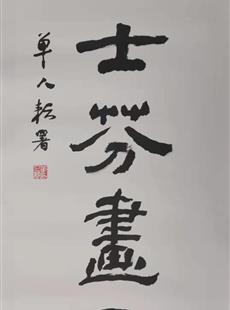 士芬畫
单人耘署